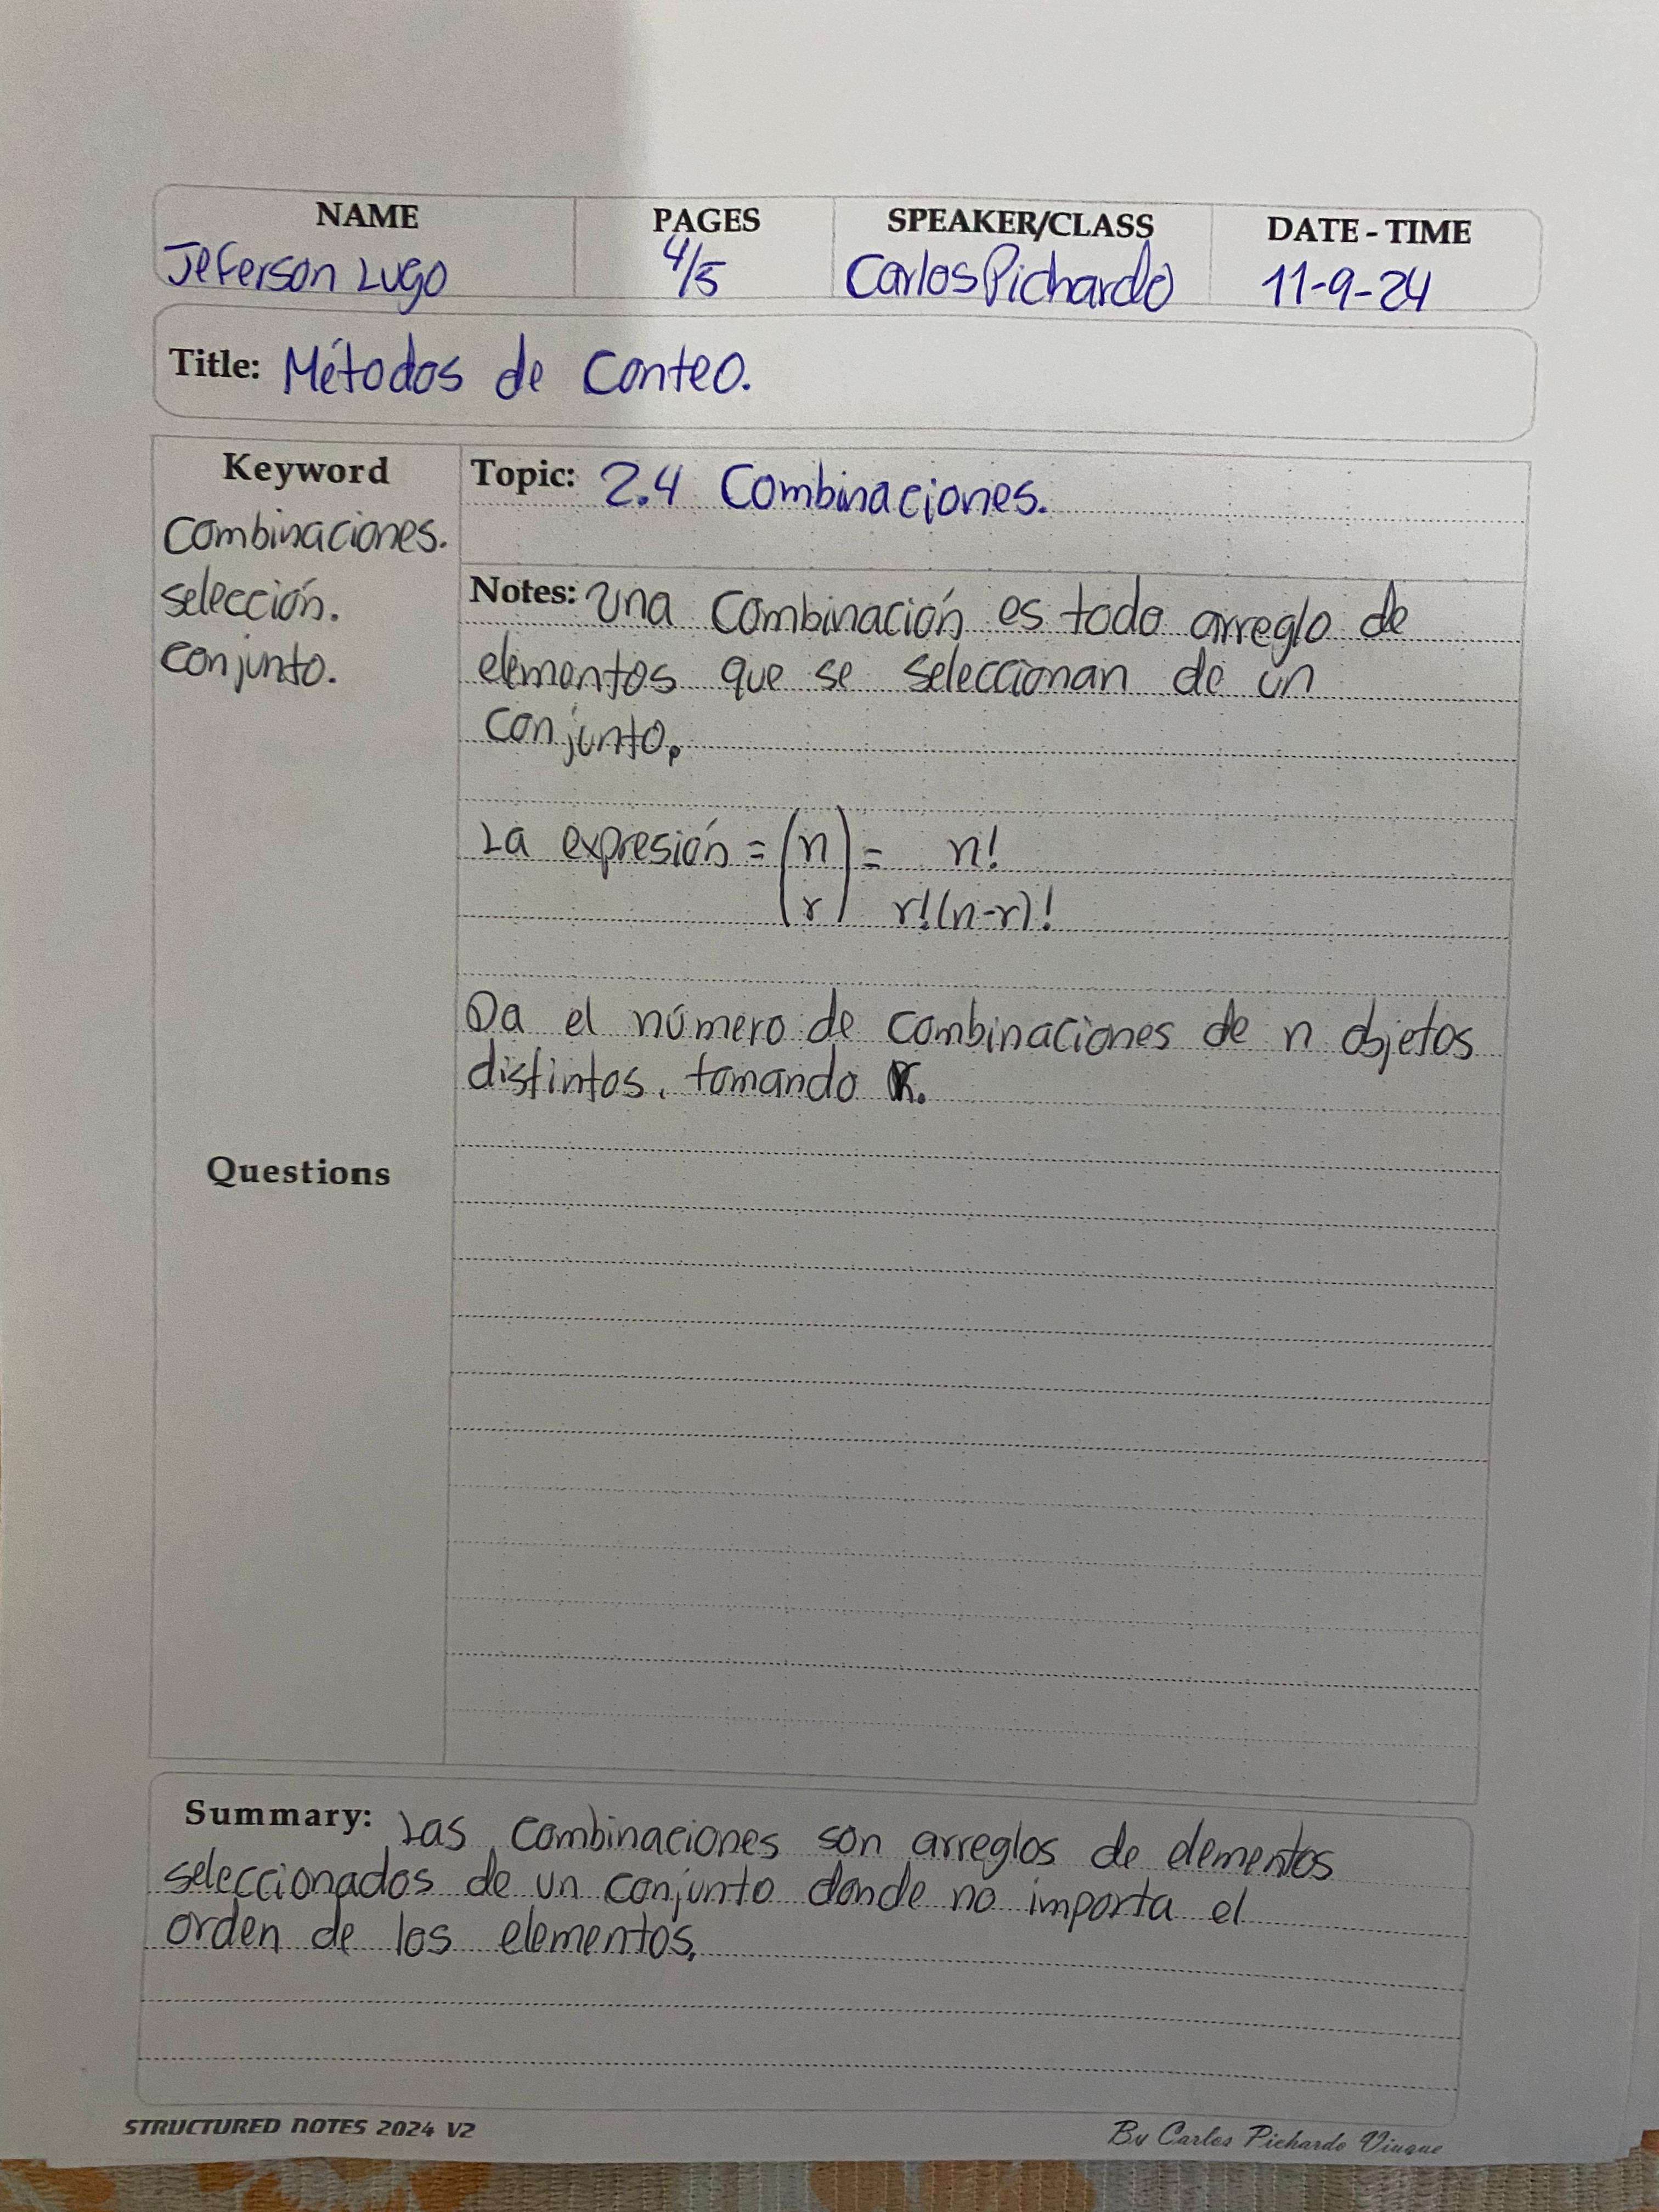 NAME PAGES SPEAKER/CLASS DATE - TIME
Jeferson Lugo 4/5 Carlos Pichardo 11-9-24
Title: Métodos de Conteo.
Keyword
Combinaciones.
selección.
conjunto.
Topic: 2.4 Combinaciones.
Notes: Una Combinación es todo arreglo de
elementos que se seleccionan de un
conjunto.
La expresión = (n r) = n!
r!(n-r)!
Da el número de combinaciones de n objetos
distintos. tomando r.
Questions
Summary: Las combinaciones son arreglos de elementos
seleccionados de un conjunto donde no importa el
orden de los elementos.
STRUCTURED NOTES 2024 V2 By Carlos Pichardo Viuque